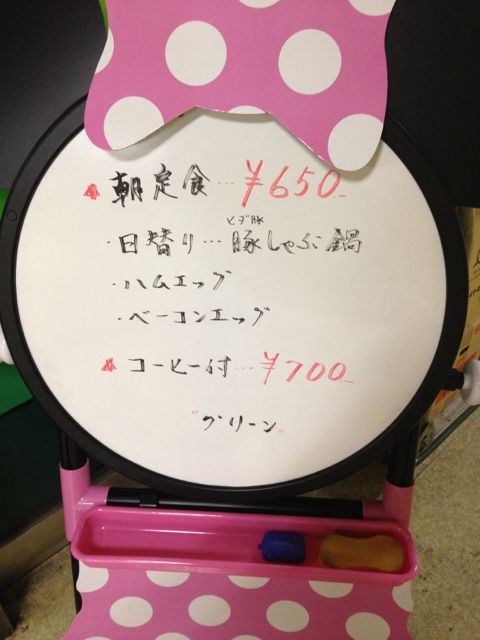 朝定食…¥650-
ヒダ豚
・日替り…豚しゃぶ鍋
・ハムエッグ
・ベーコンエッグ
コーヒー付…¥700-
"グリーン"